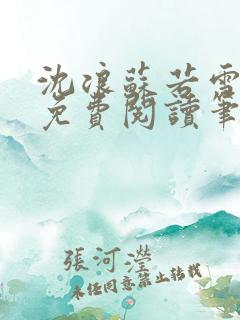 沈浪蘇若雪
免費閱讀筆
張河瀅
未經同意禁止轉載